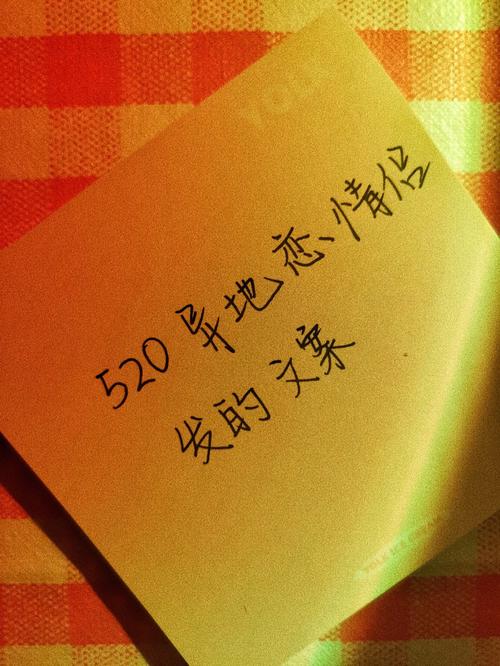 YOLK
520 异地恋情侣
发的文案